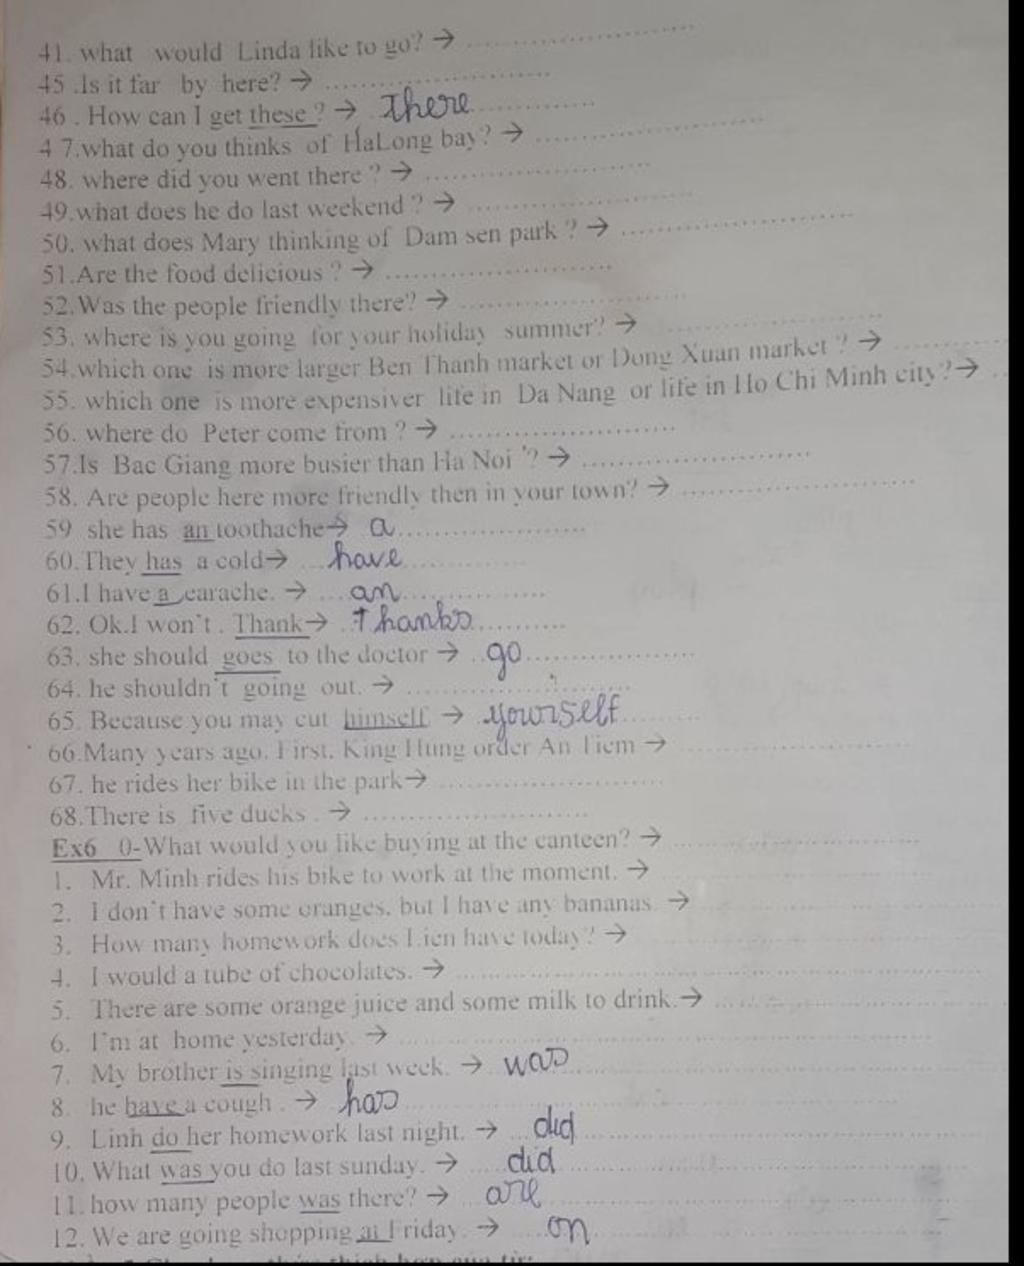 41. what would Linda like to go? → ....................
45 .Is it far by here? → ....................
46 . How can I get these ? → There ....................
4 7.what do you thinks of HaLong bay? → ....................
48. where did you went there ? → ....................
49.what does he do last weekend ? → ....................
50. what does Mary thinking of Dam sen park ? → ....................
51.Are the food delicious ? → ....................
52.Was the people friendly there? → ....................
53. where is you going for your holiday summer? → ....................
54.which one is more larger Ben Thanh market or Dong Xuan market ? → ..........
55. which one is more expensiver life in Da Nang or life in Ho Chi Minh city ?→ ..
56. where do Peter come from ? → ....................
57.Is Bac Giang more busier than Ha Noi ? → ....................
58. Are people here more friendly then in your town? → ....................
59 she has an toothache→ a ....................
60.They has a cold→ ...have ..............
61.I have a earache. → ...an ..............
62. Ok.I won't . Thank→ .Thanks ..........
63. she should goes to the doctor → ..go ....................
64. he shouldn't going out. → ....................
65. Because you may cut himself → ..yourself ..........
66.Many years ago. First. King Hung order An Tiem → ....................
67. he rides her bike in the park→ ....................
68.There is five ducks . → ....................
Ex6 0-What would you like buying at the canteen? → ....................
1. Mr. Minh rides his bike to work at the moment. → ....................
2. I don't have some oranges. but I have any bananas. → ....................
3. How many homework does Lien have today? → ....................
4. I would a tube of chocolates. → ....................
5. There are some orange juice and some milk to drink.→ ....................
6. I'm at home yesterday. → ....................
7. My brother is singing last week. → was ....................
8. he have a cough . → has ....................
9. Linh do her homework last night. → ...did ....................
10. What was you do last sunday. → .....did ....................
11. how many people was there? → ...are ....................
12. We are going shopping at Friday. → .....on ....................